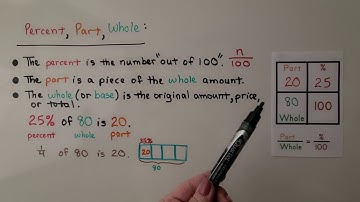 Percent, Part, Whole:
• The percent is the number "out of 100". n/100
• The part is a piece of the whole amount.
• The whole (or base) is the original amount, price,
or total.
25% of 80 is 20.
percent whole part
1/4 of 80 is 20.
25%
20
80
Part %
20 25
80 100
Whole
Part/Whole = %/100